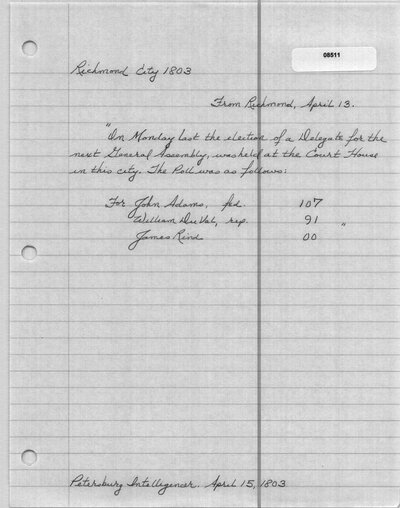 08511
Richmond City 1803
From Richmond, April 13.
"On Monday last the election of a Delegate for the
next General Assembly, was held at the Court House
in this city. The Poll was as follows:
For John Adams, fed. 107
William DuVal, rep. 91 "
James Rind 00
Petersburg Intelligencer. April 15, 1803